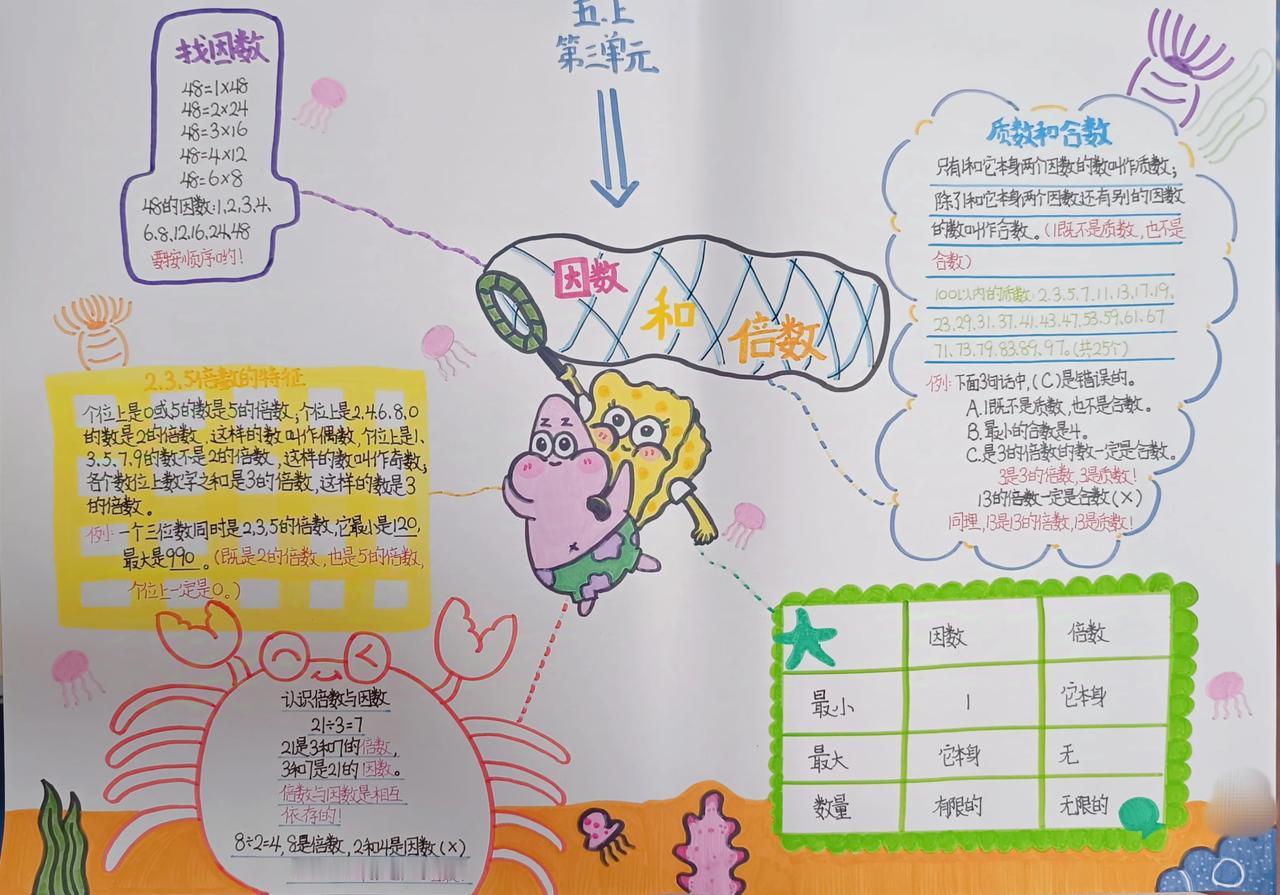 五.上
第三单元
找因数
48=1×48
48=2×24
48=3×16
48=4×12
48=6×8
48的因数:1,2,3,4,
6.8.12.16.24.48
要按顺序哟!
因数
和
倍数
质数和合数
只有1和它本身两个因数的数叫作质数;
除了1和它本身两个因数还有别的因数
的数叫作合数。(1既不是质数,也不是
合数)
100以内的质数:2.3.5.7.11.13.17.19.
23.29.31.37.41.43.47.53.59.61.67
71.73.79.83.89.97.(共25个)
例:下面3句话中,(C)是错误的。
A.1既不是质数,也不是合数。
B.最小的合数是4。
C.是3的倍数的数一定是合数。
3是3的倍数,3是质数!
13的倍数一定是合数(×)
同理,13是13的倍数,13是质数!
2.3.5倍数的特征
个位上是0或5的数是5的倍数;个位上是2.4.6.8.0
的数是2的倍数,这样的数叫作偶数,个位上是1、
3.5.7.9的数不是2的倍数,这样的数叫作奇数;
各个数位上数字之和是3的倍数,这样的数是3
的倍数。
例:一个三位数同时是2,3,5的倍数,它最小是120,
最大是990。(既是2的倍数,也是5的倍数,
个位上一定是0。)
z z
认识倍数与因数
21÷3=7
21是3和7的倍数,
3和7是21的因数。
倍数与因数是相互
依存的!
8÷2=4,8是倍数,2和4是因数(×)
因数 倍数
最小 1 它本身
最大 它本身 无
数量 有限的 无限的